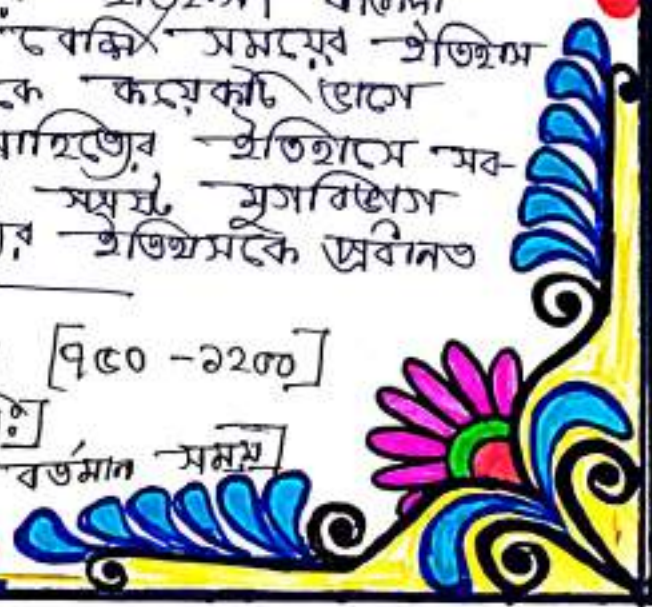 বেশি সময়ের ইতিহাস
কে কয়েকটি ভাগে
সাহিত্যের ইতিহাসে সব-
সময়ই যুগবিভাগ
র ইতিহাসকে প্রধানত
[৭৫০ - ১২০০]
বর্তমান সময়]